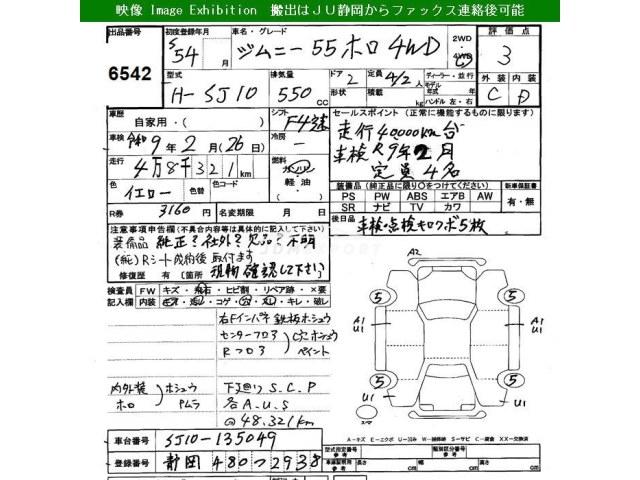 映像 Image Exhibition 搬出はＪＵ静岡からファックス連絡後可能
出品番号
6542
初度登録年月
S54
車名・グレード
ジムニー 55 ホロ 4WD
2WD
4WD
評価点
3
型式
H-SJ10
排気量
550 CC
ドア
2
形状
定員
4/2 人
積載
kg
ディーラー・並行
モデル
年式 年
ハンドル 左・右
外装
内装
C
D
車歴
自家用・( )
シフト
F4速
車検 令和 9 年 2 月 (26日)
冷房
走行
4万8千321 km
燃料
ガソリン
軽油・
色
イエロー
色替
色コード
R券
3160 円
名変期限 月 日
セールスポイント (正常に機能するものに限ります)
走行40000km台
車検 R9年2月
定員 4名
装備品 (純正品に限り○をつけてください)
PS PW ABS エアB AW
SR ナビ TV カワ
新車保証書
有・無
後日品
車検・点検キロクボ5枚
注意事項申告欄 (不具合内容等は具体的に記入して下さい)
装備品 純正?社外?欠品?不明
(純)Rシート成約後取付ます
修復歴 有 [箇所 現物確認して下さい]
検査員
記入欄
FW キズ・飛石・ヒビ割・リペア跡・×要
内装 キズ・汚レ・コゲ・穴・スレ・キレ・破レ
右Fインパネ 鉄板ホシュウ
センターフロア
Rフロア
C穴ホシュウ
ペイント
内外装 ホシュウ
ホロ ムラ
下廻り S.C.P
各 A.U.S
@48.321km
A2
5
5
5
5
A1
U1
A1
U1
U1
スマ
A－キズ E－エクボ U－凹み W－補修跡 S－サビ C－腐食 XX－交換済
車台番号
SJ10-135049
登録番号
静岡 480 つ 2938
型式指定番号
類別区分番号
長さ cm
幅 cm
高さ cm